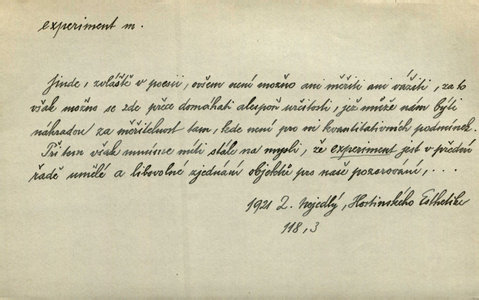 experiment m.
Jinde, zvláště v poesii, ovšem není možno ani měřiti ani vážiti, za to
však možno se zde přece domáhati alespoň určitosti, jež může nám býti
náhradou za měřitelnost tam, kde není pro ni kvantitativních podmínek.
Při tom však musíme míti stále na mysli, že experiment jest v přední
řadě umělé a libovolné zjednání objektů pro naše pozorování, . . .
1921 Z. Nejedlý, Hostinského Esthetika
118,3